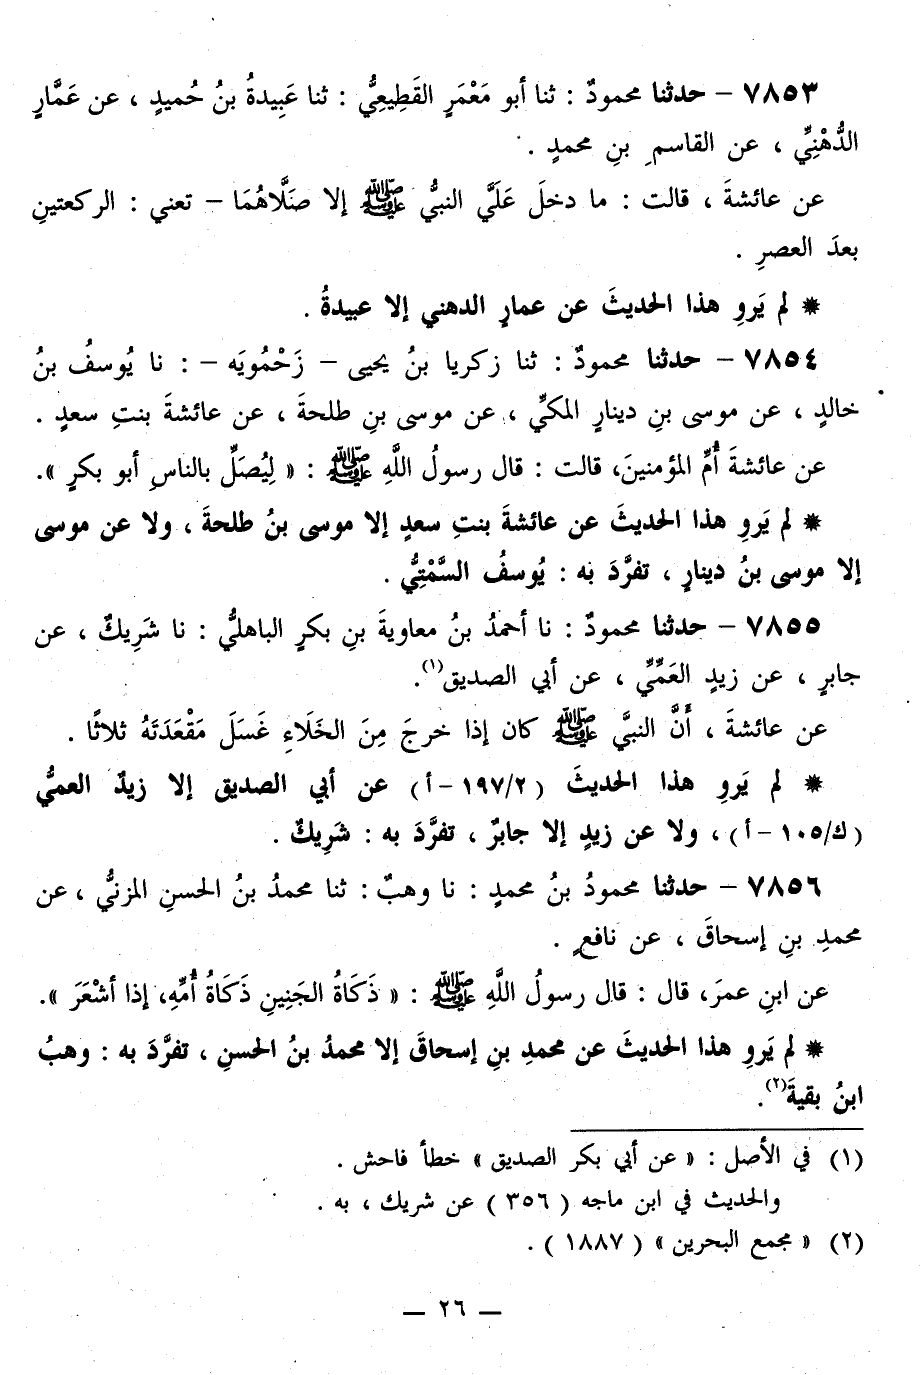 ٧٨٥٣ – حدثنا محمودٌ : ثنا أبو مَعْمَرٍ القَطِيعِيُّ : ثنا عَبِيدةُ بنُ حُميدٍ ، عن عَمَّارٍ
الدُّهْنِيِّ ، عن القاسمِ بنِ محمدٍ .
عن عائشةَ ، قالت : ما دخلَ عَلَيَّ النبيُّ ﷺ إلا صَلَّاهُمَا – تعني : الركعتينِ
بعدَ العصرِ .
* لم يَروِ هذا الحديثَ عن عمارٍ الدهني إلا عبيدةُ .
٧٨٥٤ – حدثنا محمودٌ : ثنا زكريا بنُ يحيى – زَحْمُويَه – : نا يُوسفُ بنُ
خالدٍ ، عن موسى بنِ دينارٍ المكيِّ ، عن موسى بنِ طلحةَ ، عن عائشةَ بنتِ سعدٍ .
عن عائشةَ أُمِّ المؤمنينَ، قالت : قال رسولُ اللَّهِ ﷺ : « لِيُصَلِّ بالناسِ أبو بكرٍ ».
* لم يَروِ هذا الحديثَ عن عائشةَ بنتِ سعدٍ إلا موسى بنُ طلحةَ ، ولا عن موسى
إلا موسى بنُ دينارٍ ، تفرَّدَ به : يُوسفُ السَّمْتِيُّ .
٧٨٥٥ – حدثنا محمودٌ : نا أحمدُ بنُ معاويةَ بنِ بكرٍ الباهليُّ : نا شَرِيكٌ ، عن
جابرٍ ، عن زيدٍ العَمِّيِّ ، عن أبي الصديق(١).
عن عائشةَ ، أَنَّ النبيَّ ﷺ كان إذا خرجَ مِنَ الخَلَاءِ غَسَلَ مَقْعَدَتَهُ ثلاثًا .
* لم يَروِ هذا الحديثَ (٢/١٩٧-أ) عن أبي الصديق إلا زيدٌ العميُّ
(ك/١٠٥-أ)، ولا عن زيدٍ إلا جابرٌ ، تفرَّدَ به : شَرِيكٌ .
٧٨٥٦ – حدثنا محمودُ بنُ محمدٍ : نا وهبٌ : ثنا محمدُ بنُ الحسنِ المزنيُّ ، عن
محمدِ بنِ إسحاقَ ، عن نافعٍ .
عن ابنِ عمرَ، قال : قال رسولُ اللَّهِ ﷺ : « ذَكَاةُ الجَنِينِ ذَكَاةُ أُمِّهِ، إذا أشْعَرَ ».
* لم يَروِ هذا الحديثَ عن محمدِ بنِ إسحاقَ إلا محمدُ بنُ الحسنِ ، تفرَّدَ به : وهبُ
ابنُ بقيةَ(٢).
(١) في الأصل : « عن أبي بكر الصديق » خطأ فاحش .
والحديث في ابن ماجه ( ٣٥٦ ) عن شريك ، به .
(٢) « مجمع البحرين » ( ١٨٨٧ ) .
— ٢٦ —